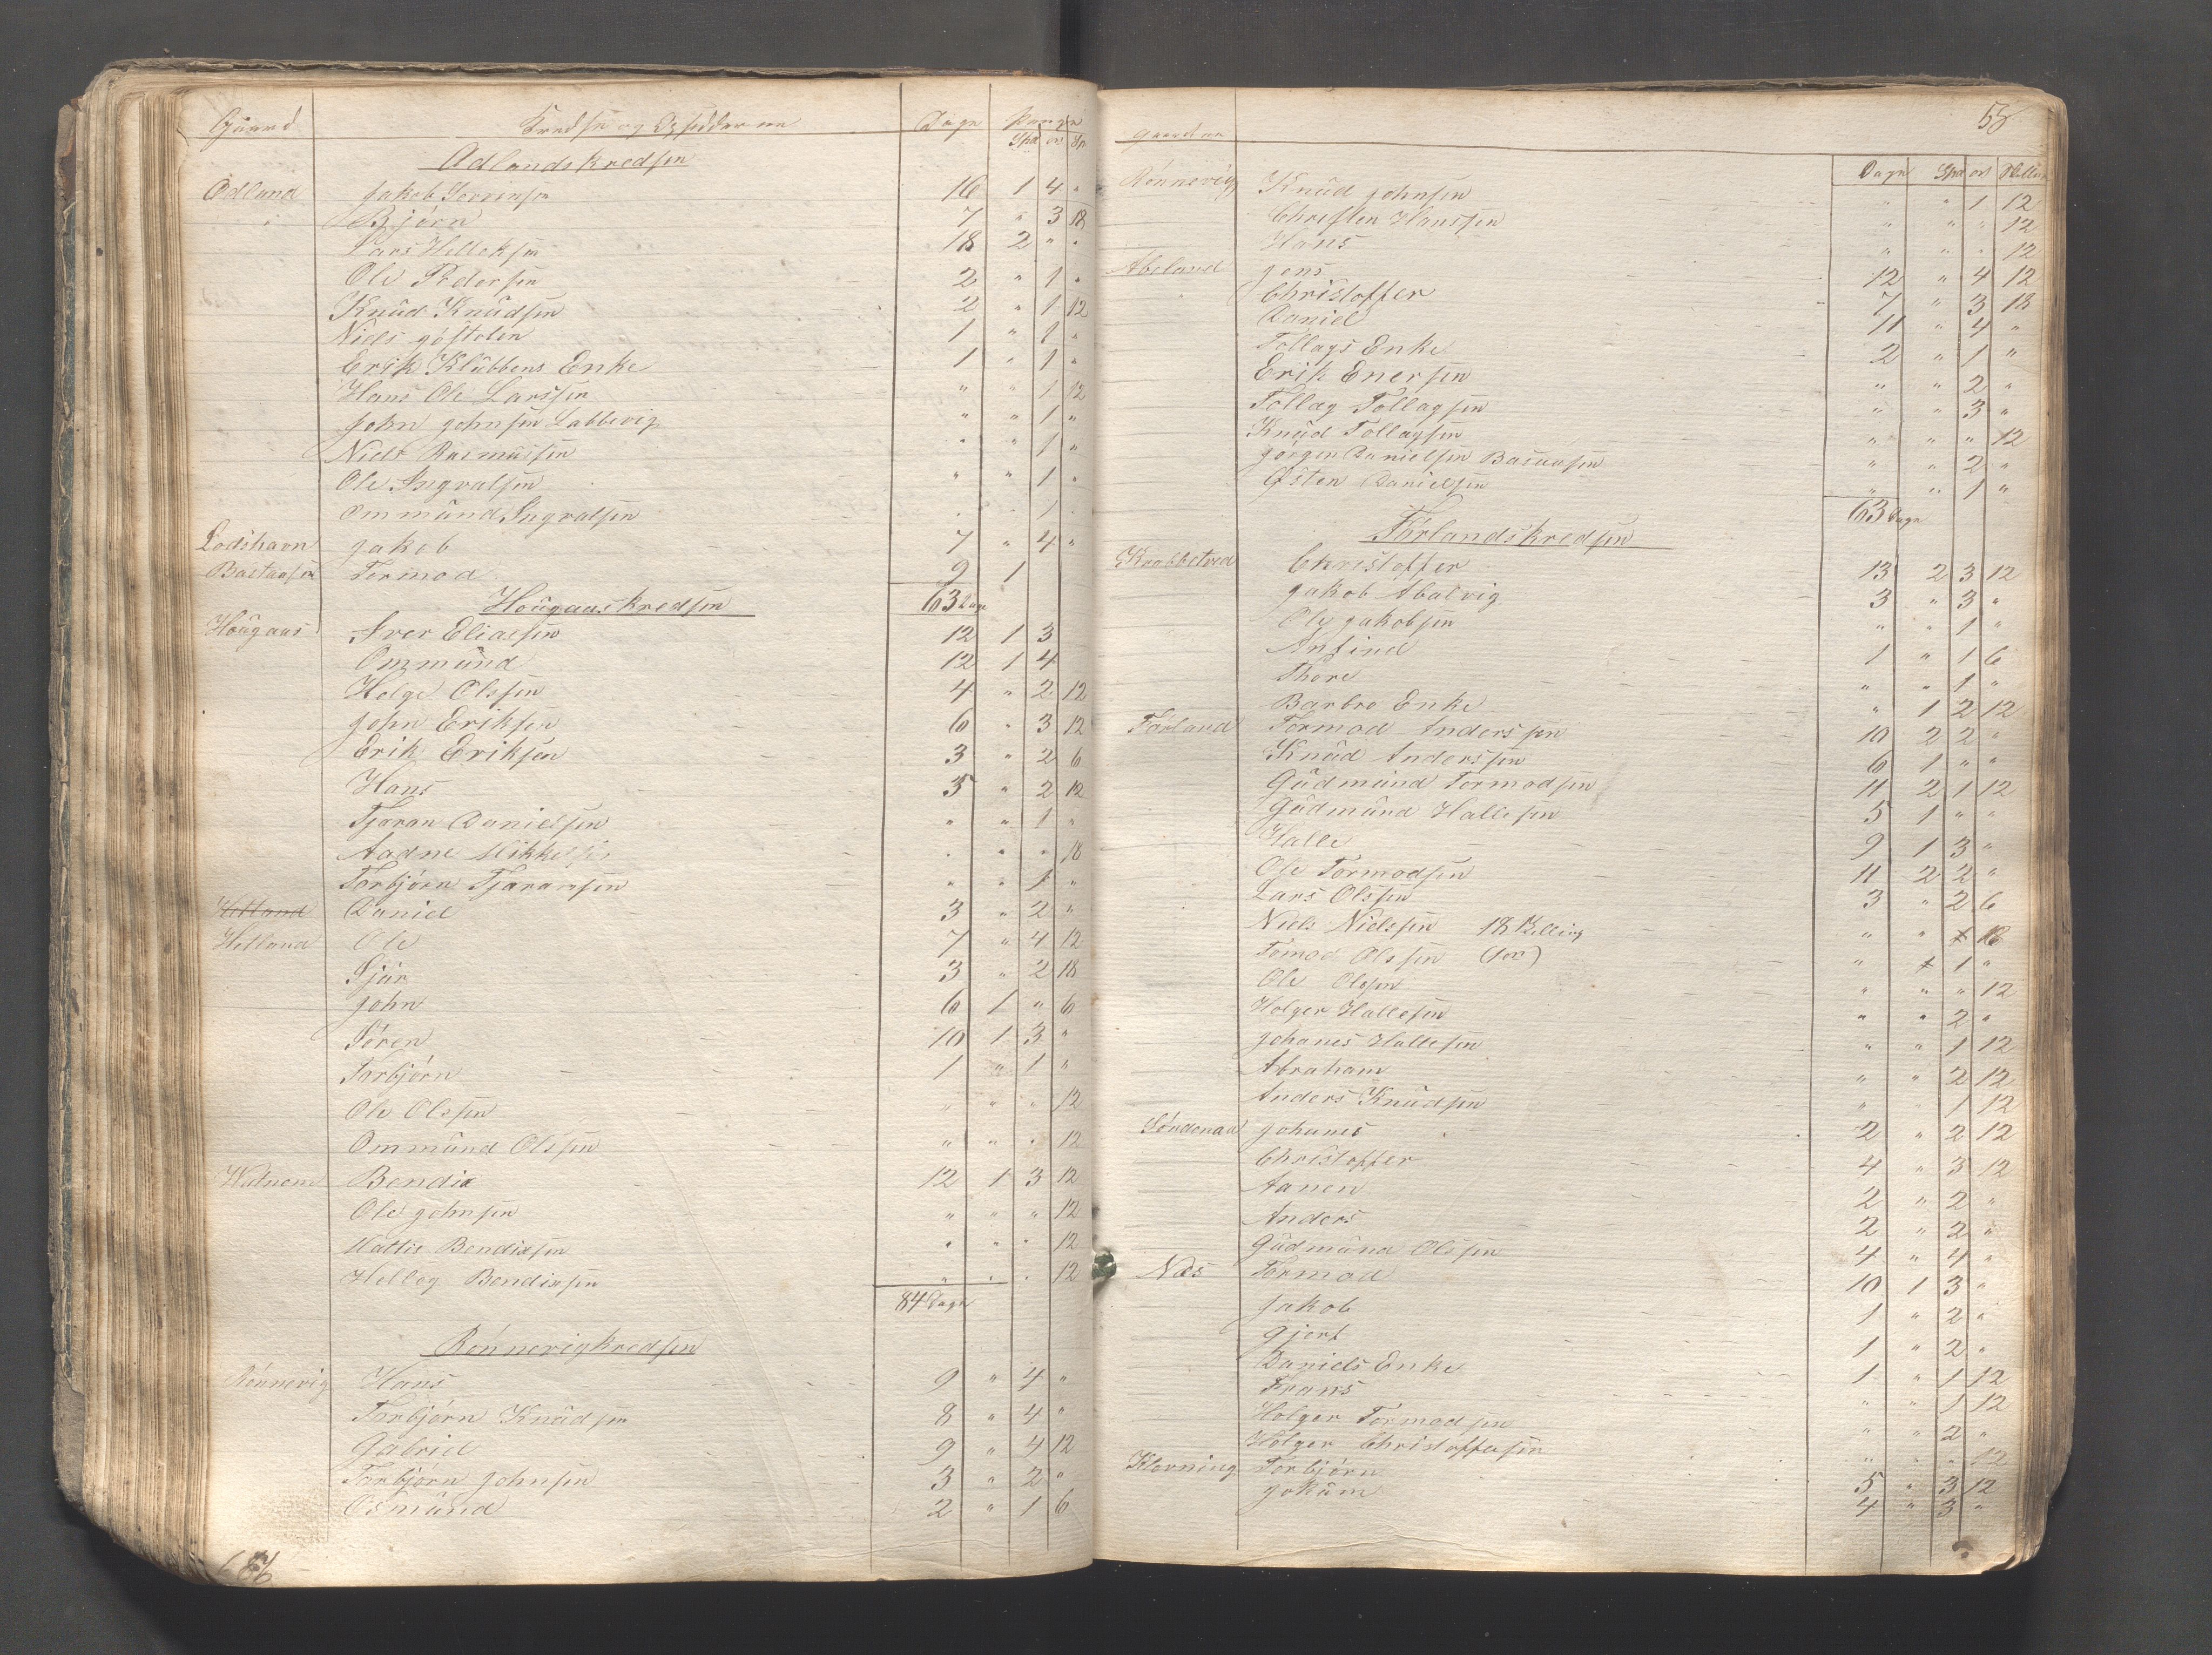 Gaard Kredse og Opsidderne Dage Penge
Spd ort Sk
Adlandskredsen
Adland Jakob Sørrensen 16 1 4 "
" Bjørn 7 " 3 18
Lars Helleksen 18 2 " "
Ole Pedersen 2 " 1 "
Knud Knudsen 2 " 1 12
Niels 1 " 1 "
Erik Klubbens Enke 1 " 1 "
Hans Ole Larssen " " 1 12
John Johnsen Labbevig " " 1 "
Niels Rasmussen " " 1 "
Ole Ingvalsen " " 1 "
Ommund Ingvalsen " " 1 "
Lodshavn Jakob 7 " 4 "
Tormod 9 1
Hougaaskredsen 63 Dage
Hougaas Iver Eliassen 12 1 3
Ommund 12 1 4
Helge Olssen 4 " 2 12
John Eriksen 6 " 3 12
Erik Eriksen 3 " 2 6
Hans 5 " 2 12
Tjøran Danielssen " " 1 "
Aadne Mikkelsen " " " 18
Torbjørn Tjøranssen " " 1 "
Hetland Daniel 3 " 2 "
Hetland Ole 7 " 4 12
Sjur 3 " 2 18
John 6 1 " 6
Søren 10 1 3 "
Torbjørn 1 " 1 "
Ole Olssen " " " 12
Ommund Olssen " " " 12
Watnem Bendix 12 1 3 12
Ole Johnsen " " " 12
Mattis Bendixsen " " " 12
Helleg Bendixsen " " " 12
84 Dage
Rønnevigkredsen
Rønnevig Hans 9 " 4 "
Torbjørn Knudsen 8 " 4 "
Gabriel 9 " 4 12
Torbjørn Johnsen 3 " 2 "
Osmund 2 " 1 6
58
Gaardene Dage Spd ort
Rønnevig Knud Johnsen " " 1 12
Christen Hanssen " " " 12
Hans " " " 12
Abeland Jens 12 " 4 12
Christoffer 7 " 3 18
Daniel 11 " 4 "
Tollags Enke 2 " 1 "
Erik Enersen " " 2 "
Tollag Tollagsen " " 3 "
Knud Tollagsen " " " 12
Jørgen Danielsen " " 2 "
Østen Danielsen " " 1 "
63 Dage
Førlandskredsen
Krabbetved Christoffer 13 2 3 12
Jakob Abalvig 3 " 3 "
Ole Jakobsen " " 1 "
Anfind 1 " 1 6
Thore " " 1 "
Barbro Enke " 1 2 12
Førland Tormod Anderssen 10 2 2 "
Knud Anderssen 6 1 " "
Gudmund Tormodsen 11 2 1 12
Gudmund Hallesen 5 1 " "
Halle 9 1 3 "
Ole Tormodsen 11 2 2 "
Lars Olssen 3 " 2 6
Niels Nielssen 18 " "
Tomod Olssen " 1 "
Ole Olssen " " " 12
Holger Hallesen " " 2 "
Johanes Hallesen " " 1 12
Abraham " " 2 12
Anders Knudsen " " 1 12
Søndenaa Johanes 2 " 2 12
Christoffer 4 " 3 12
Aanen 2 " 2 "
Anders 2 " 2 "
Gudmund Olssen 4 " 4 "
Næs Tormod 10 1 3 "
Jakob 1 " 2 "
Gjert 1 " 2 "
Daniels Enke 1 " 1 12
Frans " " 1 12
Holger Tormodsen " " 2 "
Holger Christoffersen " " " 12
Kløvning Torbjørn 5 " 3 12
Jokum 4 " 3 "